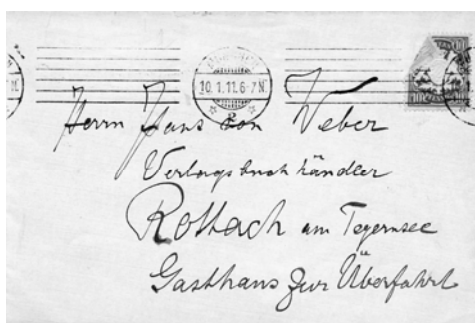 10.1.11.6-7N
2
Herrn Hans von Weber
Verlagsbuchhändler
Rottach am Tegernsee
Gasthaus zur Überfahrt